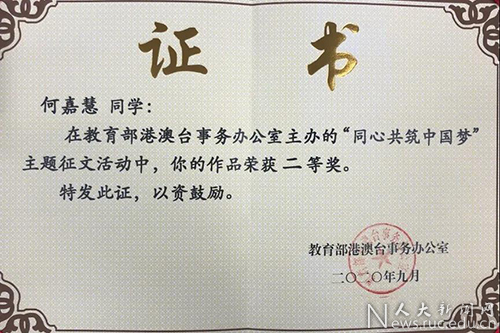 证书
何嘉慧 同学：
在教育部港澳台事务办公室主办的“同心共筑中国梦”
主题征文活动中，你的作品荣获 二等奖。
特发此证，以资鼓励。
教育部港澳台事务办公室
二〇二〇年九月
人大新闻网
News.ruc.edu.cn